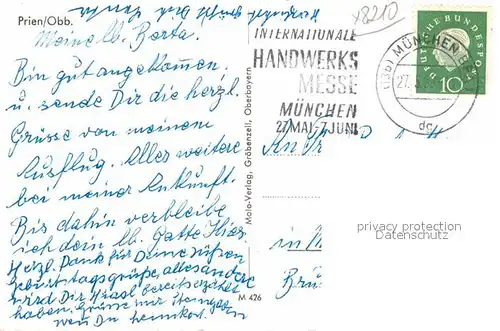 Prien/Obb.
x8210
Meine lb. Berta.
Bin gut angekommen.
u. sende Dir die herzl.
Grüsse von meinem
Ausflug. Alles weitere
bei meiner Ankunft.
Bis dahin verbleibe
ich dein lb. Gatte
Herzl. Dank für Deine süßen
Geburtstagsgrüße, alles andere
wird Dir bereits erzählt
haben, Grüße mir
wen Du kommst.
INTERNATIONALE
HANDWERKS
MESSE
MÜNCHEN
27.MAI-7.JUNI
(13b) MÜNCHEN
27.
dc
DEUTSCHE BUNDESPOST
10
Molo-Verlag, Gröbenzell, Oberbayern
M 426
An Fr
in M
Brü
privacy protection
Datenschutz